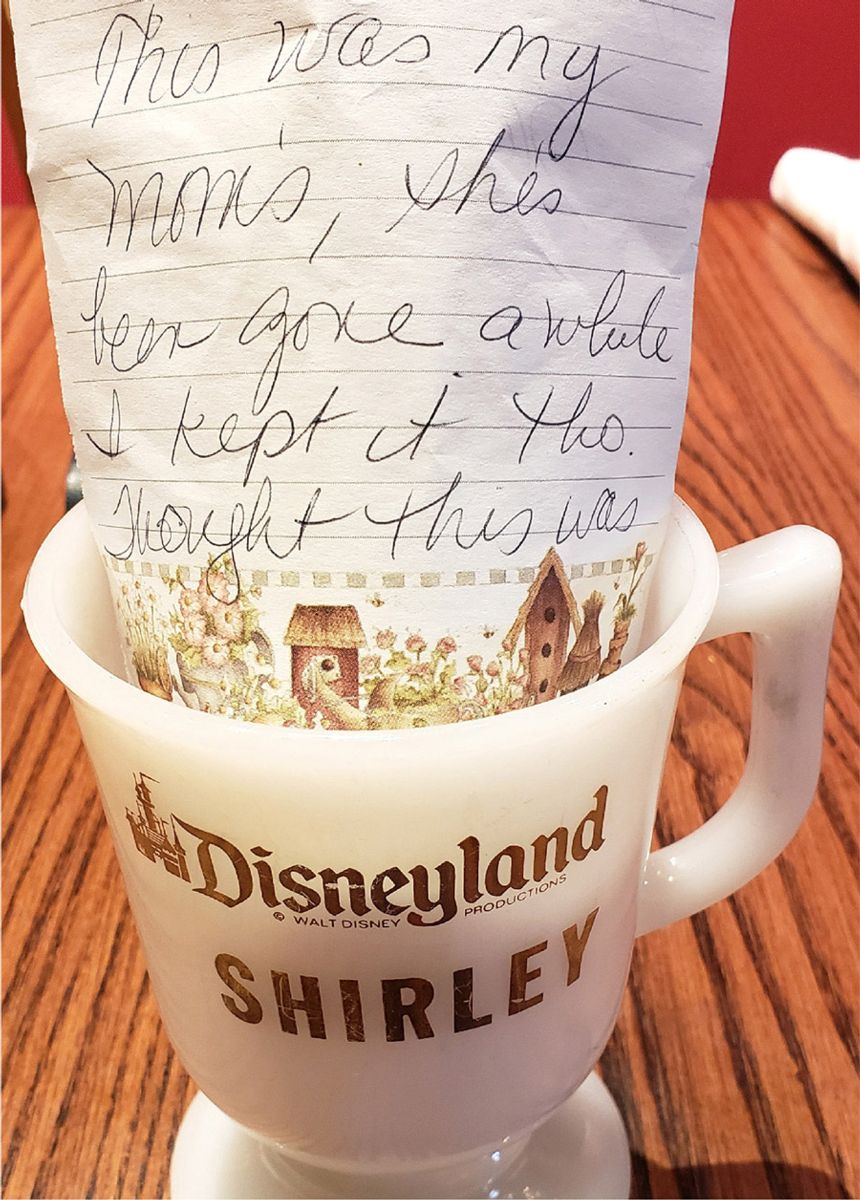 This was my
mom's, she's
been gone awhile
I kept it tho.
Thought this was
Disneyland
© WALT DISNEY PRODUCTIONS
SHIRLEY